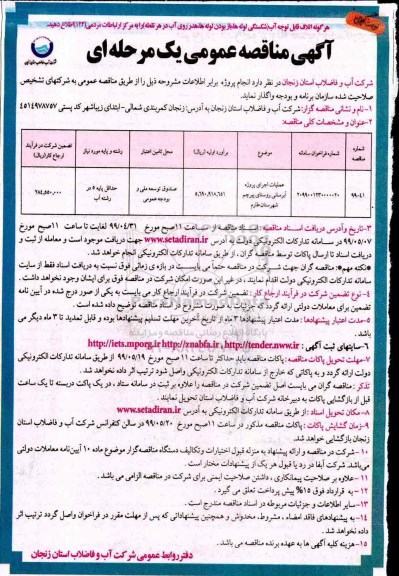 هرگونه اتلاف قابل توجه آب (شکستگی لوله ها، باز بودن لوله ها، هدر روی آب در هر نقطه) را به مرکز ارتباطات مردمی (۱۲۲) اطلاع دهید.
آگهی مناقصه عمومی یک مرحله ای
شرکت آب و فاضلاب استان زنجان در نظر دارد انجام پروژه برابر اطلاعات مشروحه ذیل را از طریق مناقصه عمومی به شرکتهای تشخیص
صلاحیت شده سازمان برنامه و بودجه واگذار نماید.
۱- نام و نشانی مناقصه گزار: شرکت آب و فاضلاب استان زنجان به آدرس: زنجان کمربندی شمالی- ابتدای زیباشهر کد پستی ۴۵۱۴۹۷۸۷۵۷
۲- عنوان و مشخصات کلی مناقصه:
شماره مناقصه شماره فراخوان سامانه موضوع برآورد اولیه (ریال) محل تامین اعتبار رشته و پایه مورد نیاز تضمین شرکت در فرآیند ارجاع کار (ریال)
۹۹-۴۱ عملیات اجرای پروژه آبرسانی روستای پرچم شهرستان طارم ۵,۶۹۰,۹۱۸,۶۵۱ صندوق توسعه ملی و بودجه عمومی حداقل پایه ۵ در رشته آب ۲۸۴,۵۵۰,۰۰۰
۳- تاریخ و آدرس دریافت اسناد مناقصه: اسناد مناقصه از ساعت ۱۱ صبح مورخ ۹۹/۰۴/۳۱ لغایت تا ساعت ۱۱ صبح مورخ
۹۹/۰۵/۰۷ در سامانه تدارکات الکترونیکی دولت به آدرس www.setadiran.ir جهت دریافت موجود است و معامله از ثبت و
دریافت اسناد تا ارسال پاکات توسط مناقصه گران، از طریق سامانه تدارکات الکترونیکی انجام خواهد شد.
*نکته مهم*: مناقصه گران جهت شرکت در مناقصه حتماً می بایست در بازه ی زمانی فوق نسبت به دریافت اسناد فقط از سایت
سامانه تدارکات الکترونیکی دولت اقدام نمایند، در غیر این صورت امکان شرکت در مناقصه فوق برای ایشان وجود نخواهد داشت.
۴- نوع تضمین شرکت در فرآیند ارجاع کار: تضمین شرکت در فرآیند ارجاع کار می بایست به یکی از صور درج شده در آیین نامه
تضمین برای معاملات دولتی ارائه گردد که جزئیات به صورت مشروح در اسناد مناقصه توضیح داده شده است.
۵- مدت اعتبار پیشنهادها: مدت اعتبار پیشنهادها ۳ ماه از تاریخ آخرین مهلت تسلیم پیشنهادها بوده و قابل تمدید تا ۳ ماه دیگر می
باشد.
۶- سایتهای ثبت آگهی: http://iets.mporg.ir http://znabfa.ir , http://tender.nww.ir
۷- مهلت تحویل پاکات مناقصه: پاکات مناقصه باید حداکثر تا ساعت ۱۱ صبح مورخ ۹۹/۰۵/۱۹ از طریق سامانه تدارکات الکترونیکی
دولت ارائه گردد و به پاکاتی که خارج از سامانه تدارکات الکترونیکی واصل شود ترتیب اثر داده نخواهد شد.
تذکر: مناقصه گران می بایست اصل تضمین شرکت در مناقصه را علاوه بر ثبت در سامانه ستاد، در یک پاکت دربسته تا یک ساعت
قبل از بازگشایی پاکات به دبیرخانه شرکت آب و فاضلاب استان تحویل نمایند.
۸- مکان تحویل اسناد: از طریق سامانه تدارکات الکترونیکی به آدرس www.setadiran.ir
۹- زمان گشایش پاکات: پاکات مناقصه مذکور در ساعت ۱۱ صبح مورخ ۹۹/۰۵/۲۰ در سالن کنفرانس شرکت آب و فاضلاب استان
زنجان بازگشایی خواهد شد.
۱۰- شرکت در مناقصه و ارائه پیشنهاد به منزله قبول اختیارات و تکالیف دستگاه مناقصه گزار موضوع ماده ۱۰ آیین نامه معاملات دولتی
می باشد. شرکت آبفا در رد یا قبول هر یک از پیشنهادات مختار است.
۱۱- علاوه بر صلاحیت پیمانکاری، داشتن صلاحیت ایمنی برای شرکت در مناقصه الزامی می باشد.
۱۲- به قرارداد فوق ۱۵% پیش پرداخت تعلق می گیرد.
۱۳- سایر اطلاعات و جزئیات مربوطه در اسناد مناقصه مندرج است.
۱۴- به پیشنهادهای فاقد امضاء، مشروط، مخدوش و همچنین پیشنهاداتی که پس از مهلت مقرر در فراخوان واصل گردد ترتیب اثر
داده نخواهد شد.
۱۵- هزینه کلیه آگهی ها به عهده برنده مناقصه می باشد.
دفتر روابط عمومی شرکت آب و فاضلاب استان زنجان